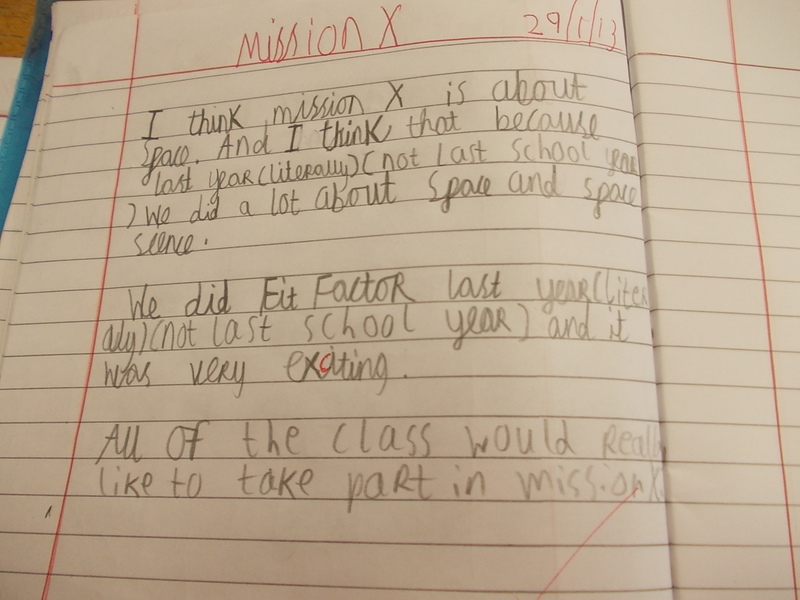 Mission X 29/1/13
I think mission X is about
space. And I think that because
last year (literally) (not last school year
) We did a lot about space and space
sience.
We did Fit Factor last year (liter
ally) (not last school year) and it
was very exciting.
All of the class would Really
like to take part in mission X.